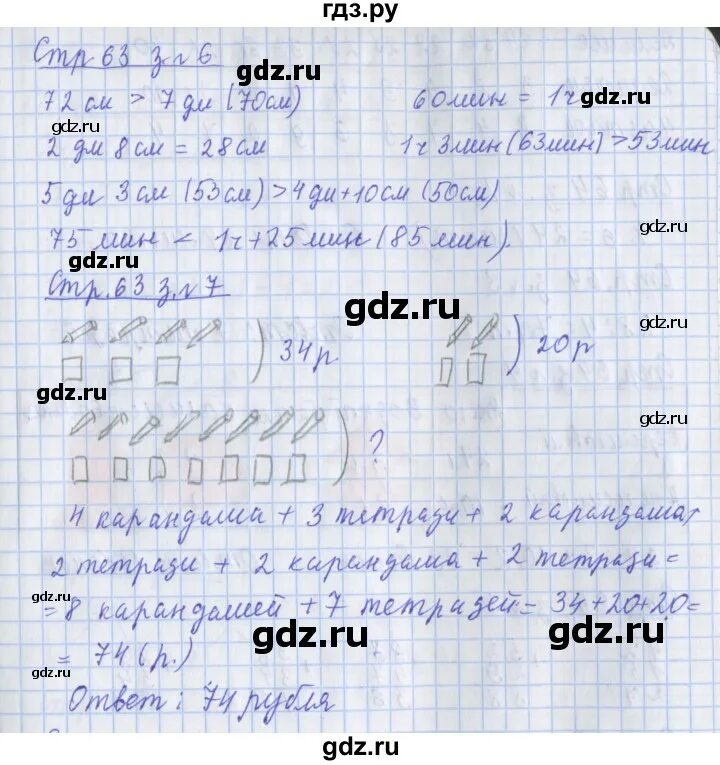 гдз.ру
Стр 63 з. 6
gdz.ru
72 см > 7 дм (70см) 60мин = 1ч gdz.ru
gdz.ru
2 дм 8см = 28см 1ч 3мин (63мин) > 53мин
gdz.ru
5 дм 3см (53см) > 4дм+10см (50см)
75 мин < 1ч+25мин (85мин).
gdz.ru
gdz.ru
Стр. 63 з. 7
gdz.ru
gdz.ru
34р
20р
gdz.ru
gdz.ru
?
4 карандаша + 3 тетради + 2 карандаша+
2 тетради + 2 карандаша + 2 тетради =
gdz.ru
= 8 карандашей + 7 тетрадей = 34+20+20=
gdz.ru
gdz.ru
= 74 (р.)
gdz.ru
Ответ: 74 рубля
gdz.ru